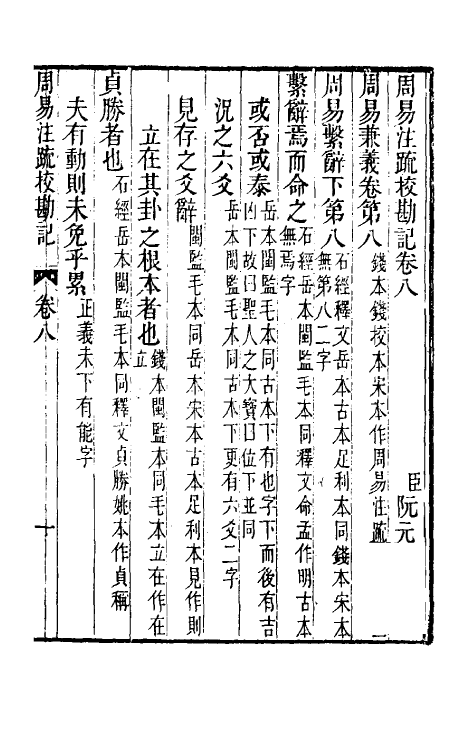 周易注疏校勘記卷八
臣阮元
周易兼義卷第八
錢本錢校本宋本作周易注疏
周易繫辭下第八
石經釋文岳本古本足利本同錢本宋本
無第八二字
繫辭焉而命之
石經岳本閩監毛本同釋文命孟作明古本
無焉字
或否或泰
岳本閩監毛本同古本下有也字下而後有吉
凶下故曰聖人之大寳曰位下並同
況之六爻
岳本閩監毛本同古本下更有六爻二字
見存之爻辭
閩監毛本同岳本宋本古本足利本見作則
立在其卦之根本者也
錢本閩監本同毛本立在作在
立
貞勝者也
石經岳本閩監毛本同釋文貞勝姚本作貞稱
夫有動則未免乎累
正義未下有能字
周易注疏校勘記
卷八